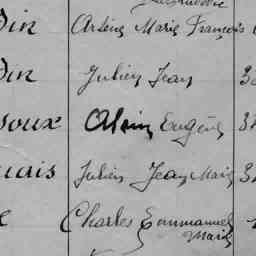 din Arsène Marie François
din Julien Jean 3
doux Alain Eugène 3
uais Julien Jean Marie 3
e Charles Emmanuel
Marie